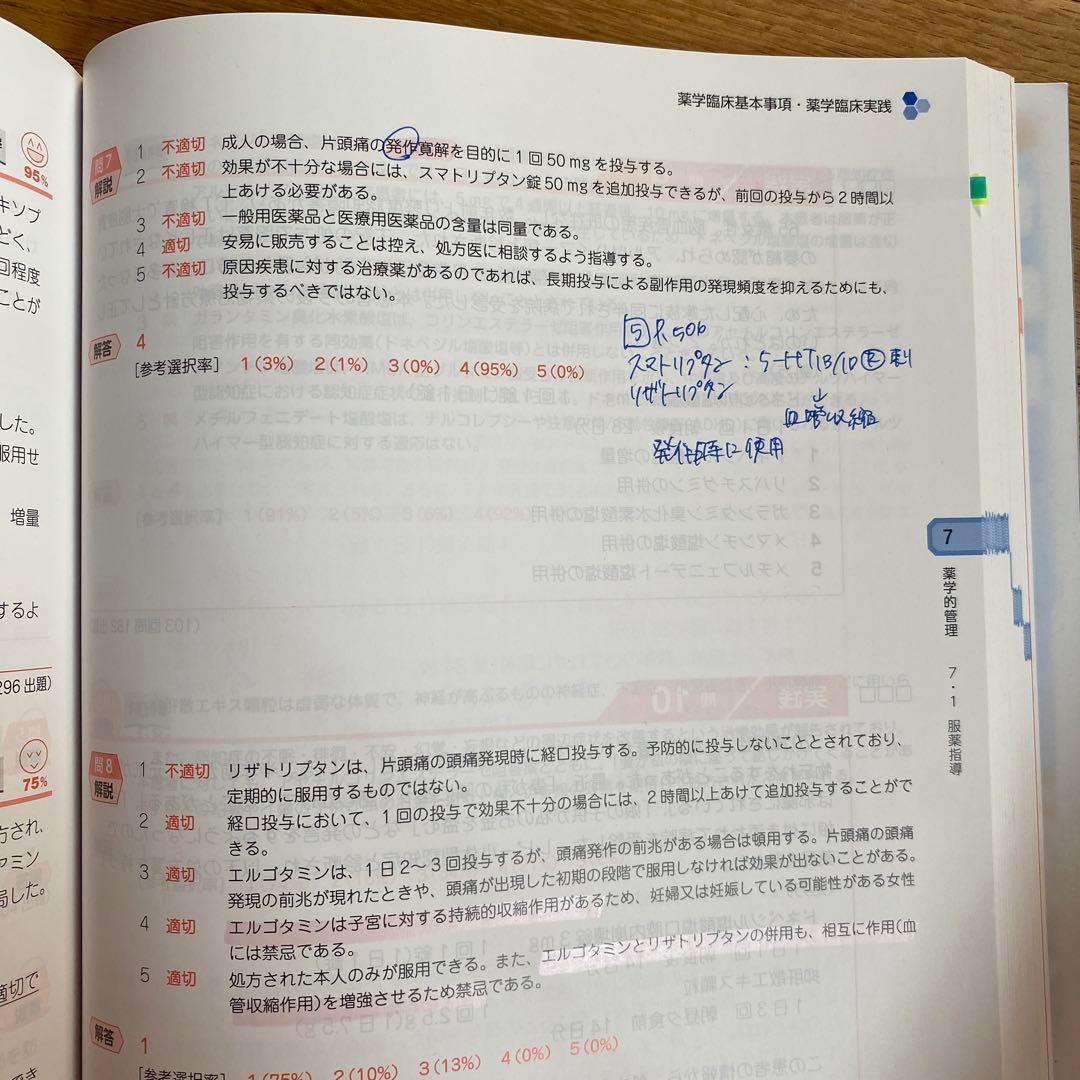 薬学臨床基本事項・薬学臨床実践
95%
キソプ
どく、
回程度
ことが
した。
服用せ
増量
するよ
296出題)
75%
方され、
ァミン
局した。
適切で
でき
問7
解説
1 不適切 成人の場合、片頭痛の発作寛解を目的に1回50mgを投与する。
2 不適切 効果が不十分な場合には、スマトリプタン錠50mgを追加投与できるが、前回の投与から2時間以
上あける必要がある。
3 不適切 一般用医薬品と医療用医薬品の含量は同量である。
4 適切 安易に販売することは控え、処方医に相談するよう指導する。
5 不適切 原因疾患に対する治療薬があるのであれば、長期投与による副作用の発現頻度を抑えるためにも、
投与するべきではない。
解答 4
[参考選択率] 1(3%) 2(1%) 3(0%) 4(95%) 5(0%)
5 P.506
スマトリプタン : 5-HT1B/1D 受 刺
リザトリプタン
↓
血管収縮
発作時に使用
7
薬学的管理 7・1 服薬指導
問8
解説
1 不適切 リザトリプタンは、片頭痛の頭痛発現時に経口投与する。予防的に投与しないこととされており、
定期的に服用するものではない。
2 適切 経口投与において、1回の投与で効果不十分の場合には、2時間以上あけて追加投与することがで
きる。
3 適切 エルゴタミンは、1日2〜3回投与するが、頭痛発作の前兆がある場合は頓用する。片頭痛の頭痛
発現の前兆が現れたときや、頭痛が出現した初期の段階で服用しなければ効果が出ないことがある。
4 適切 エルゴタミンは子宮に対する持続的収縮作用があるため、妊婦又は妊娠している可能性がある女性
には禁忌である。
5 適切 処方された本人のみが服用できる。また、エルゴタミンとリザトリプタンの併用も、相互に作用(血
管収縮作用)を増強させるため禁忌である。
解答 1
[参考選択率] 1(75%) 2(10%) 3(13%) 4(0%) 5(0%)